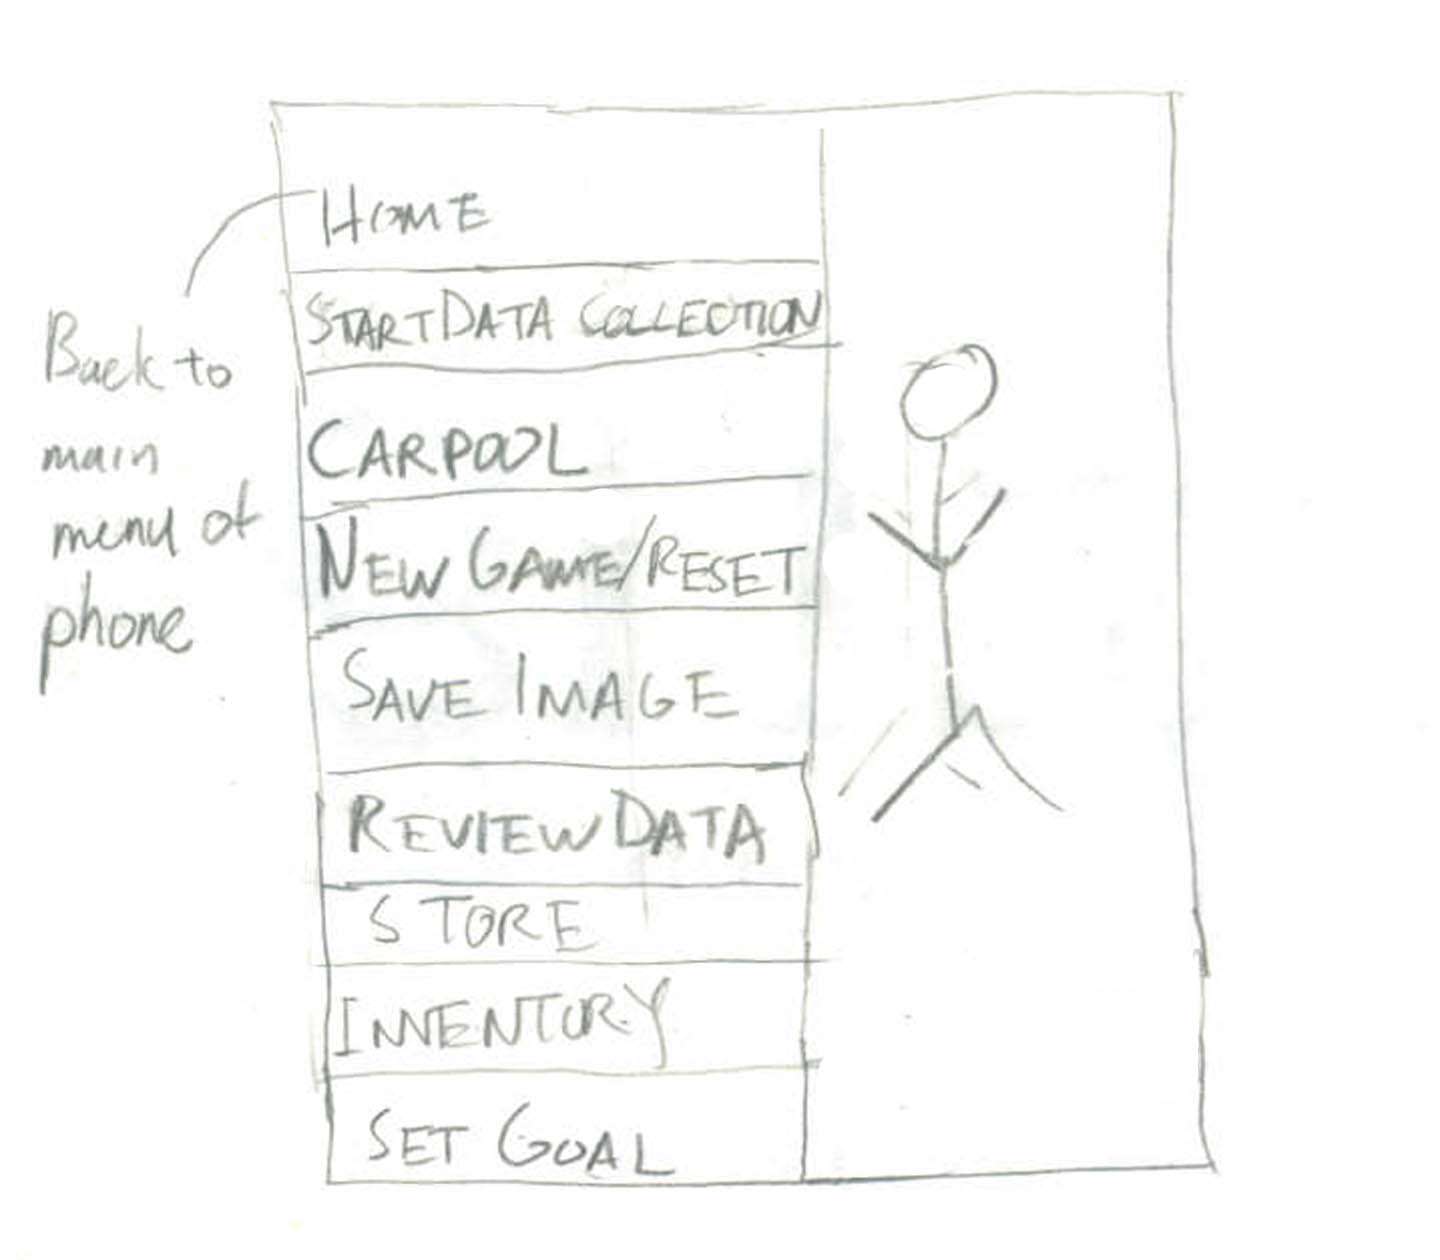 HOME
START DATA COLLECTION
CARPOOL
NEW GAME/RESET
SAVE IMAGE
REVIEW DATA
STORE
INVENTORY
SET GOAL
Back to
main
menu of
phone